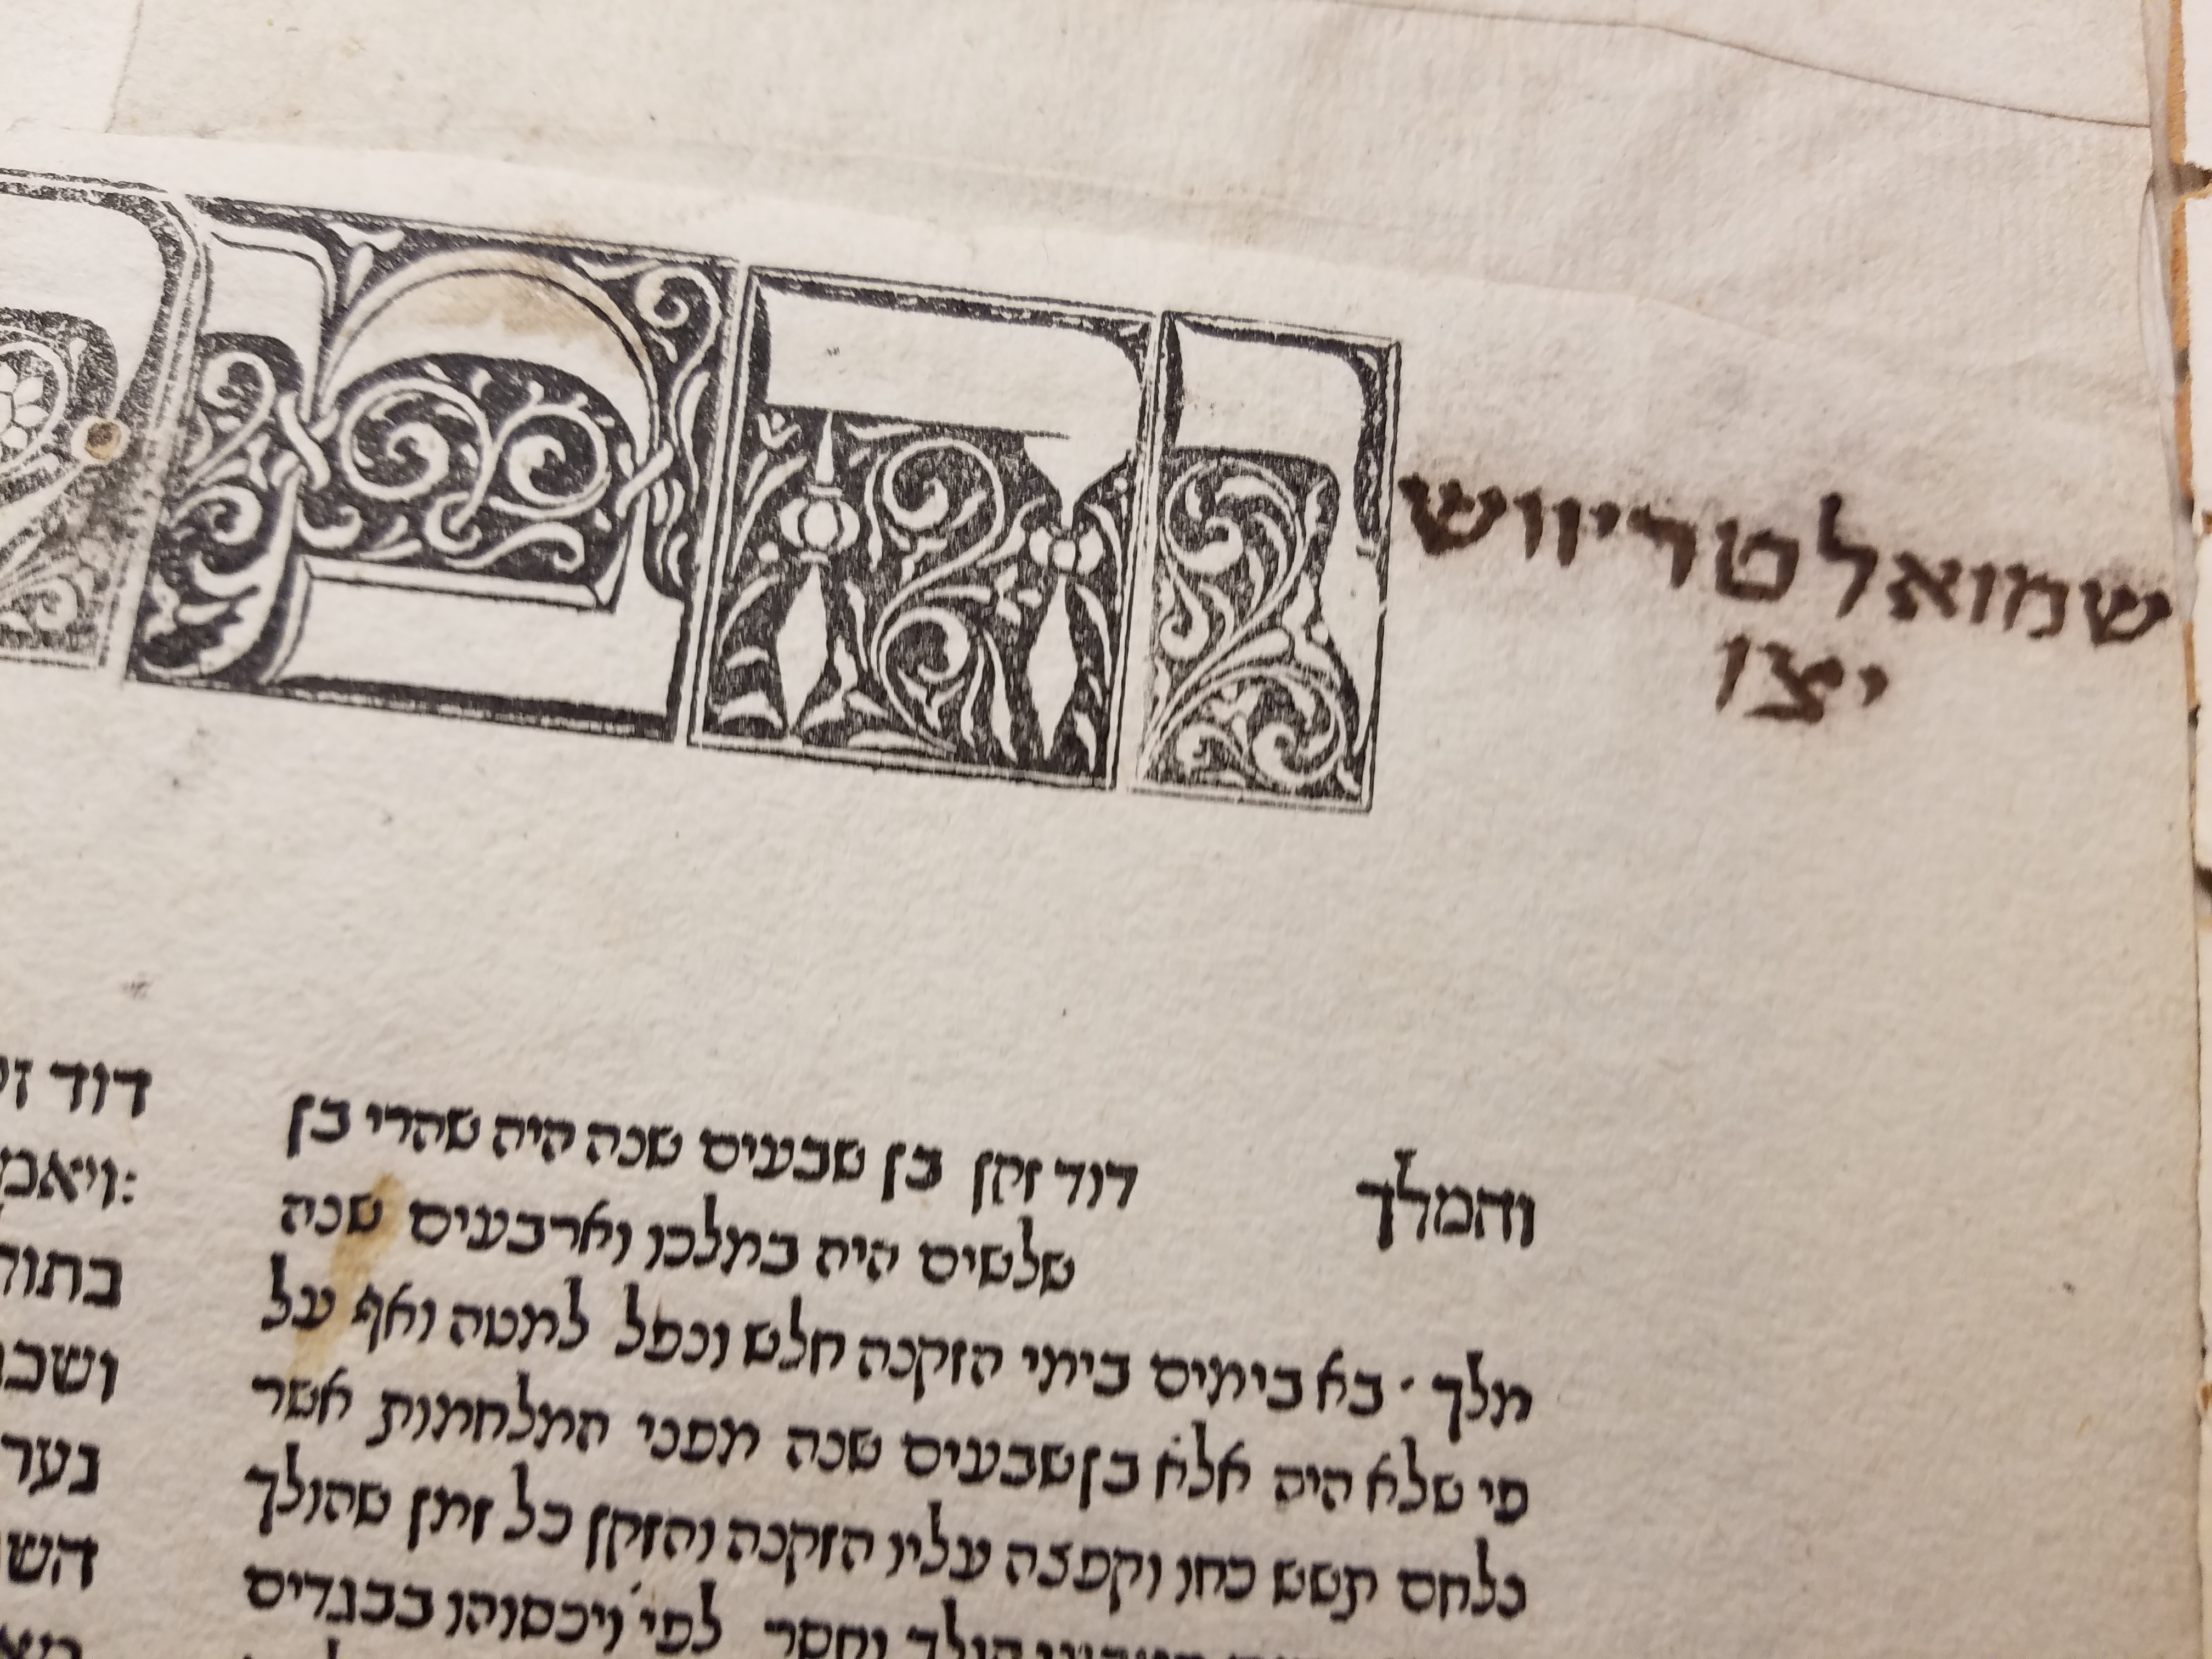 שמואל טריווש
יצו
והמל
והמלך דוד זקן בן שבעים שנה היה שהרי בן
שלשים היה במלכו וארבעים שנה
מלך · בא בימים בימי הזקנה חלש וכפל למטה ואף על
פי שלא היה אלא בן שבעים שנה מפני המלחמות אשר
נלחם תשש כחו וקפצה עליו הזקנה והזקן כל זמן שהולך
הולך וחסר לפי׳ ויכסוהו בבגדים
דוד
ויאמ:
ושכב
נער